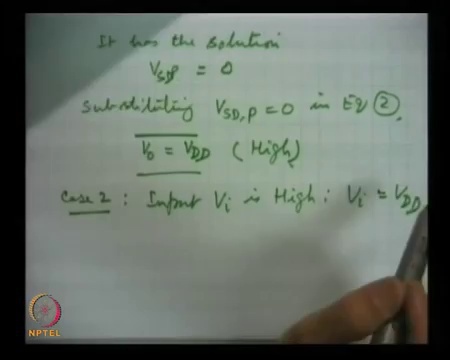 It has the solution
V_SDP = 0
Substituting V_SD,P = 0 in Eq ②,
V_o = V_DD (High)
Case 2 : Input V_i is High : V_i = V_DD
NPTEL